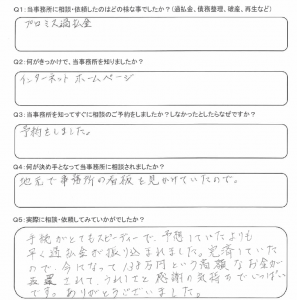 Q1：当事務所に相談・依頼したのはどの様な事でしたか？（過払金、債務整理、破産、再生など）
プロミス過払金
Q2：何がきっかけで、当事務所を知りましたか？
インターネット ホームページ
Q3：当事務所を知ってすぐに相談のご予約をしましたか？しなかったとしたらなぜですか？
予約をしました。
Q4：何が決め手となって当事務所に相談されましたか？
地元で事務所の看板を見かけていたので。
Q5：実際に相談・依頼してみていかがでしたか？
手続がとてもスピーディーで、予想していたよりも
早く過払金が振り込まれました。完済していた
ので、今になって138万円という高額なお金が
されて、うれしさと感謝の気持ちでいっぱい
です。ありがとうございました。